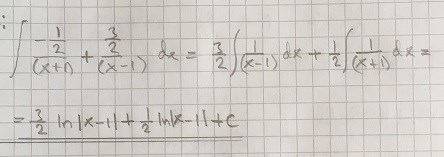 : ∫ (-1/2)/(x+1) + (3/2)/(x-1) dx = 3/2 ∫ 1/(x-1) dx + 1/2 ∫ 1/(x+1) dx =
= 3/2 ln|x-1| + 1/2 ln|x-1| + C